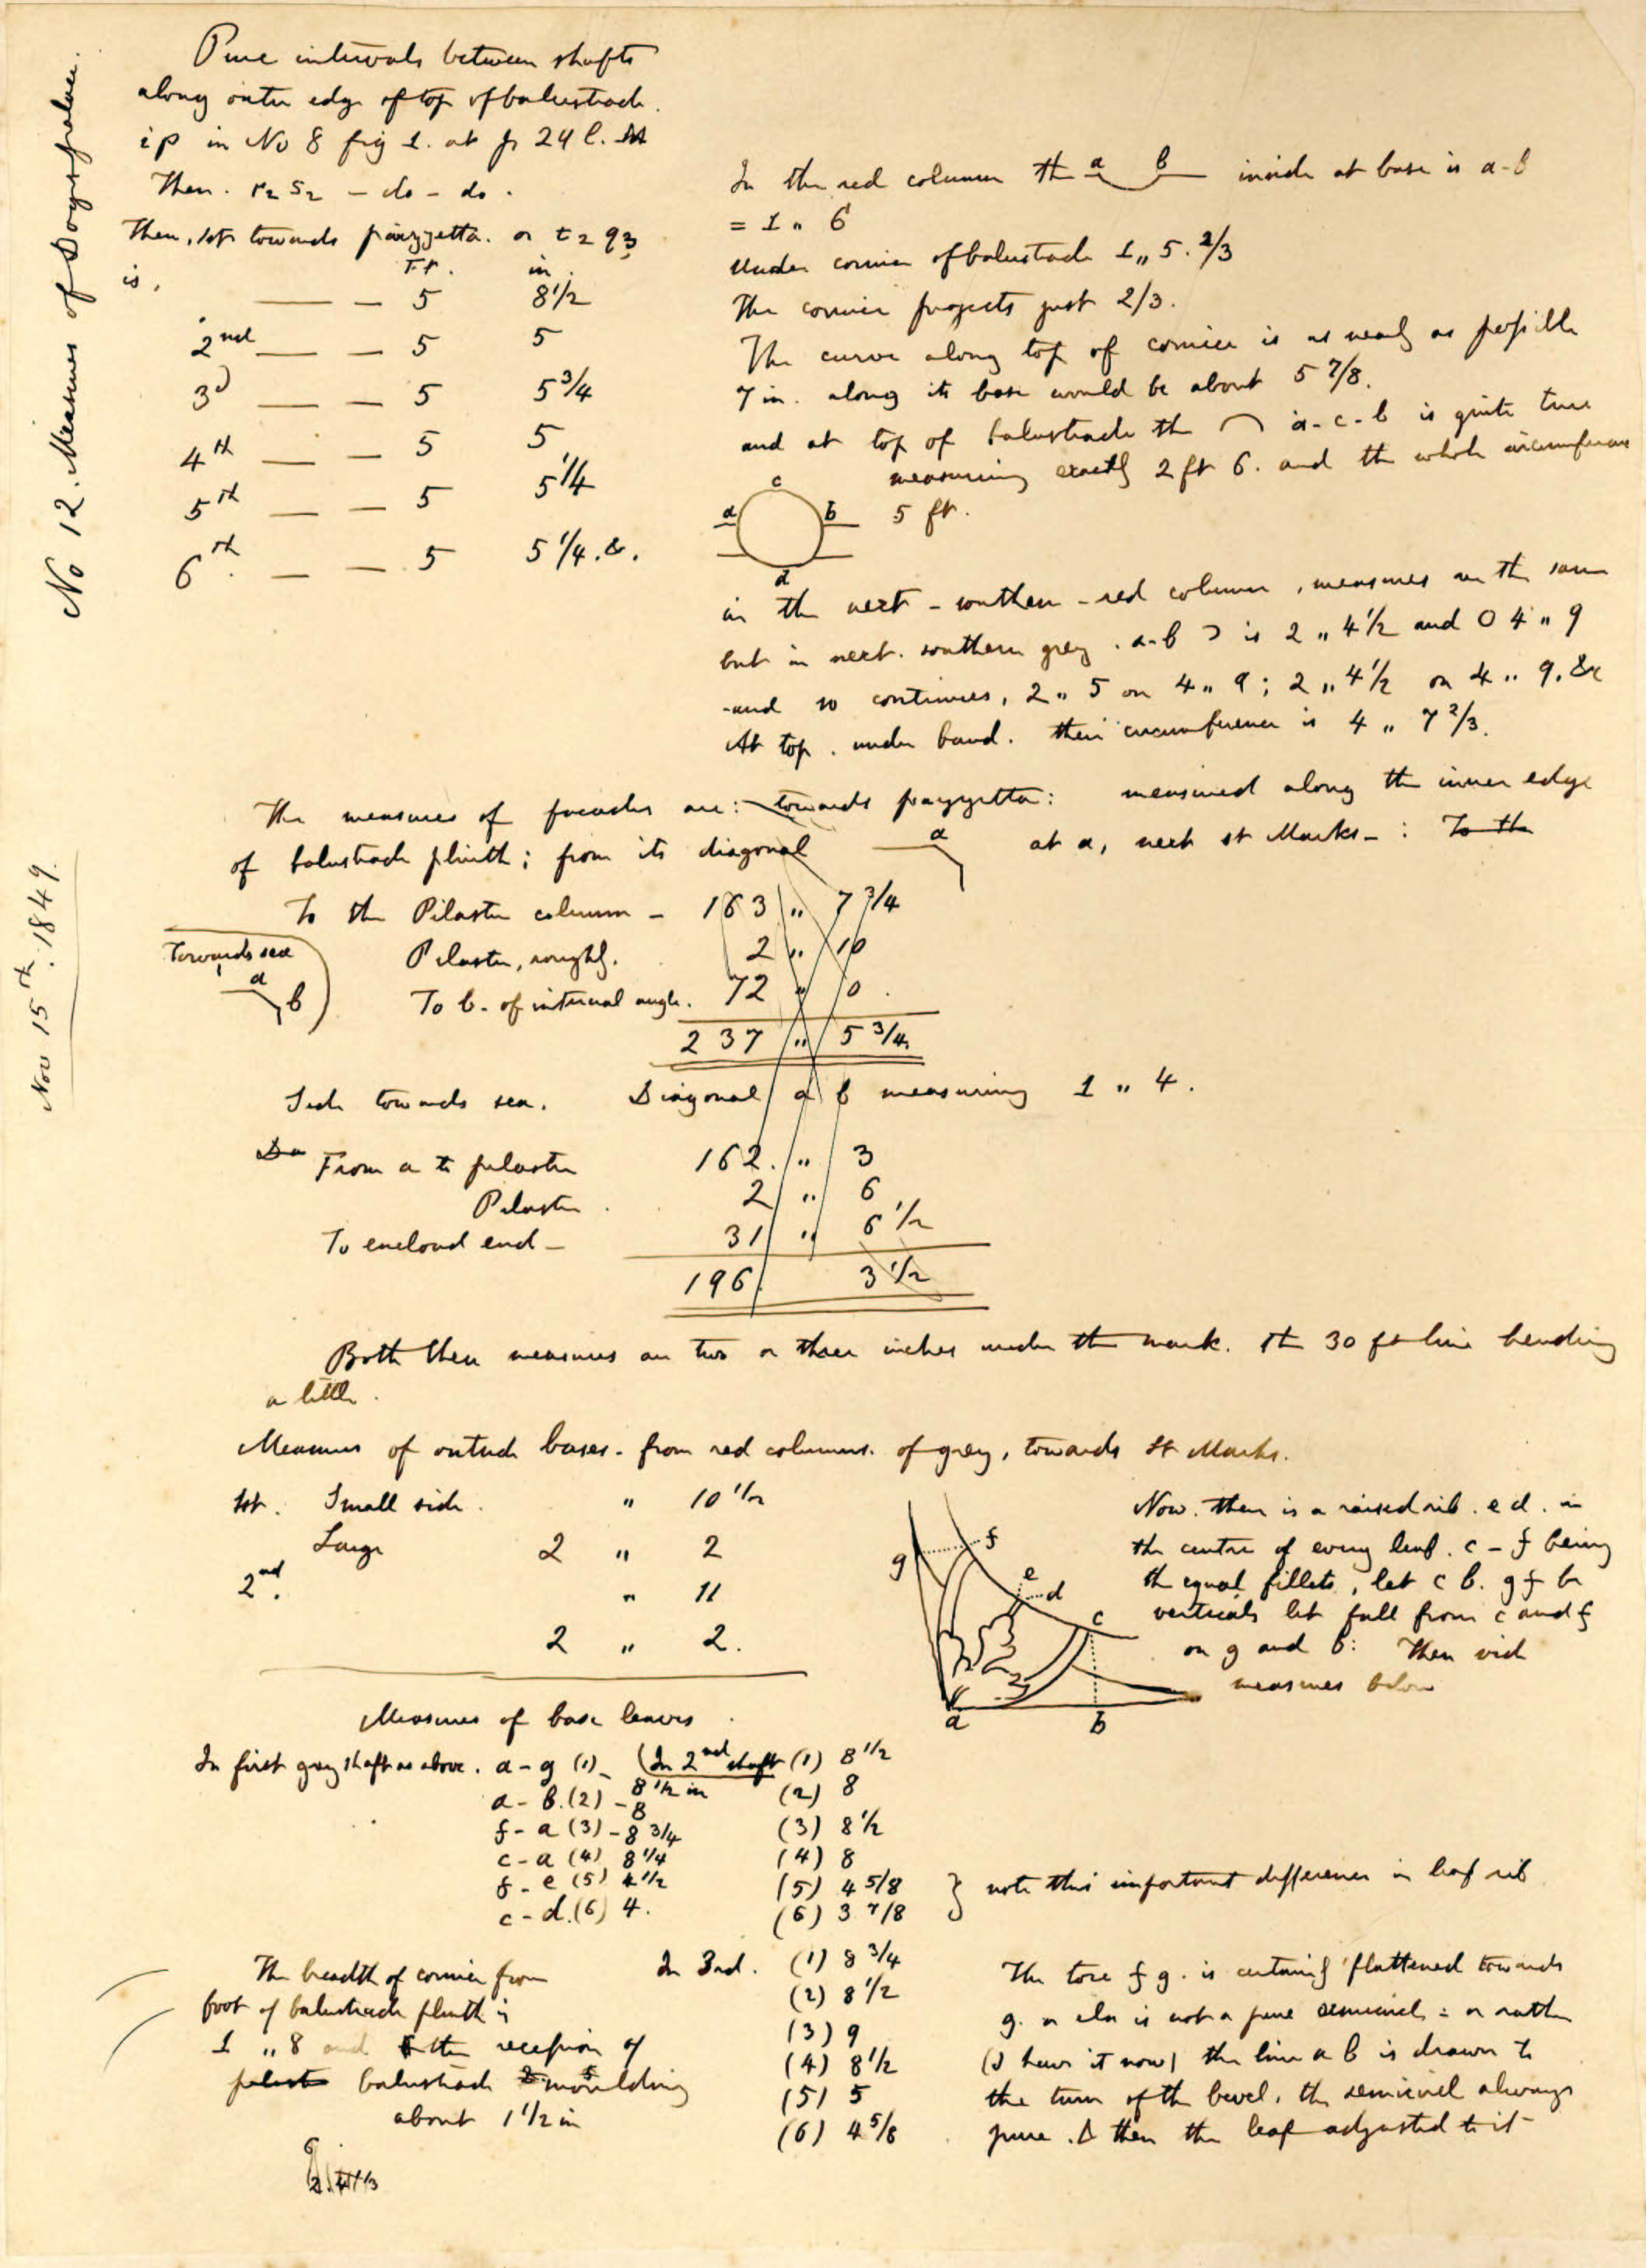 No 12. Measures of Doge's palace.
Nov 15th. 1849.
Pure intervals between shafts
along outer edge of top of balustrade.
ip in No 8 fig 1. at p 24 l.
Then. r2 s2 – do – do.
Then, 1st towards piazzetta. or t2 q3
is,
Ft. in.
— — 5 8 1/2
2nd — — 5 5
3d — — 5 5 3/4
4th — — 5 5
5th — — 5 5 1/4
6th. — — 5 5 1/4. &.
In the red column the a b inside at base is a-b
= 1 „ 6
Under cornice of balustrade 1 „ 5. 2/3
The cornice projects just 2/3.
The curve along top of cornice is as nearly as possible
7 in. along its base would be about 5 7/8.
and at top of balustrade the a-c-b is quite true
measuring exactly 2 ft 6. and the whole circumference
5 ft.
c
a b
d
in the next - southern - red column, measures are the same
but in next. southern grey. a-b is 2 „ 4 1/2 and O 4 „ 9
and so continues, 2 „ 5 on 4 „ 9; 2 „ 4 1/2 on 4 „ 9. &c
At top. under band. their circumference is 4 „ 7 2/3.
The measures of facades are: towards piazzetta: measured along the inner edge
of balustrade plinth; from its diagonal a at a, next St Marks - : To the
To the Pilaster column – 163 „ 7 3/4
Towards sea
a b
Pilaster, roughly. 2 „ 10
To b. of internal angle. 72 „ 0.
237 „ 5 3/4.
Side towards sea. Diagonal a b measuring 1 „ 4.
Do From a to pilaster 162. „ 3
Pilaster. 2 „ 6
To enclosed end – 31 „ 6 1/2
196 3 1/2
Both these measures are two or three inches under the mark. the 30 ft line bending
a little.
Measures of outside bases. from red columns. of grey, towards St Marks.
1st. Small side. „ 10 1/2
Large 2 „ 2
2nd. „ 11
2 „ 2.
Now. there is a raised rib. e d. in
the centre of every leaf. c – f being
the equal fillets, let c b. g f be
verticals let fall from c and f
on g and b: Then vide
measures below
g f e d c a b
Measures of base leaves.
In first grey shaft as above. a – g (1) – 8 1/2 in
a – b. (2) – 8
f – a (3) – 8 3/4
c – a (4) 8 1/4
f – e (5) 4 1/2
c – d. (6) 4.
(In 2nd shaft (1) 8 1/2
(2) 8
(3) 8 1/2
(4) 8
(5) 4 5/8
(6) 3 7/8
note this important difference in leaf rib
In 3rd. (1) 8 3/4
(2) 8 1/2
(3) 9
(4) 8 1/2
(5) 5
(6) 4 5/8
The breadth of cornice from
foot of balustrade plinth is
1 „ 8 and the recession of
balustrade moulding
about 1 1/2 in
The tore f g. is certainly flattened towards
g. or else is not a pure semicircle : or rather
(I have it now) the line a b is drawn to
the turn of the bevel. the semicircle always
pure. & then the leaf adjusted to it –